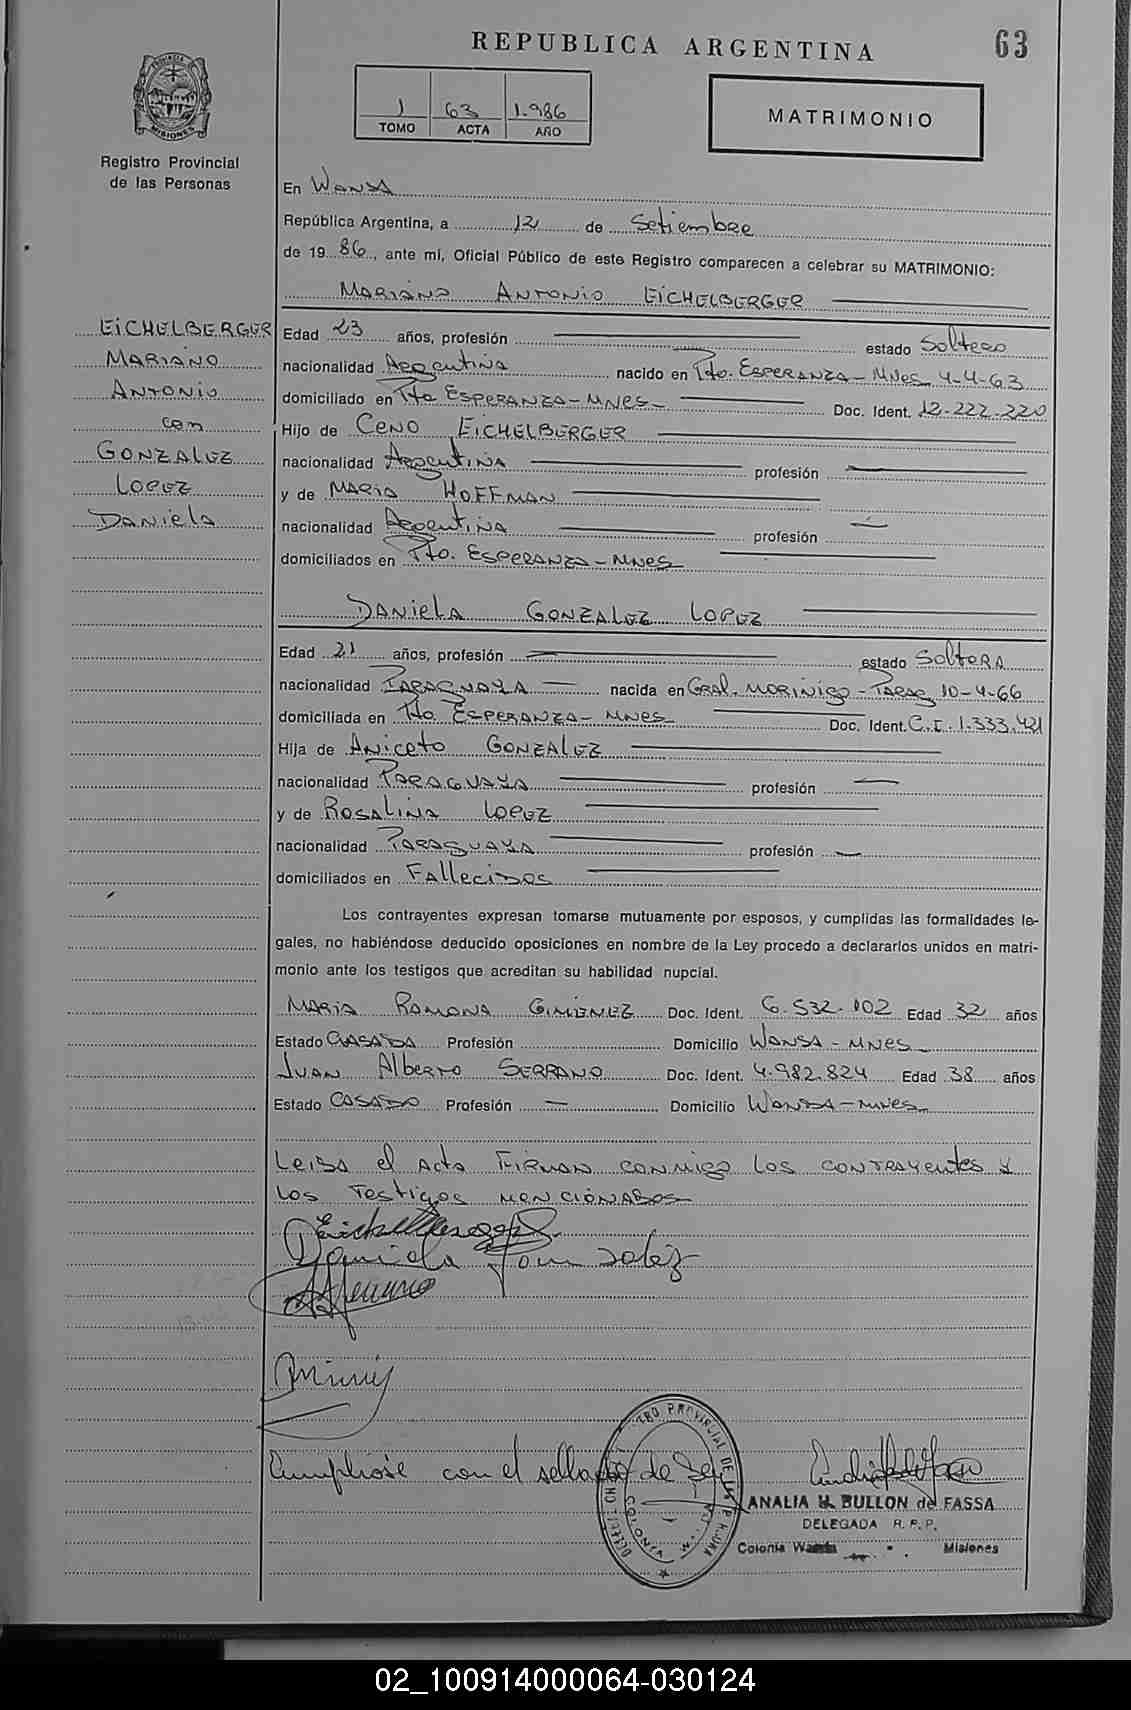 REPUBLICA ARGENTINA
63
PROVINCIA DE MISIONES
Registro Provincial
de las Personas
1 63 1.986
TOMO ACTA AÑO
MATRIMONIO
En WANDA
República Argentina, a 12 de Setiembre
de 19 86, ante mí, Oficial Público de este Registro comparecen a celebrar su MATRIMONIO:
MARIANO ANTONIO EICHELBERGER
EICHELBERGER
MARIANO
ANTONIO
con
GONZALEZ
LOPEZ
DANIELA
Edad 23 años, profesión estado Soltero
nacionalidad Argentina nacido en Pto. ESPERANZA - MNES 4-4-63
domiciliado en Pto ESPERANZA - MNES - Doc. Ident. 12.222.220
Hijo de CENO EICHELBERGER
nacionalidad Argentina profesión
y de MARIA HOFFMAN
nacionalidad Argentina profesión
domiciliados en Pto. ESPERANZA - MNES
DANIELA GONZALEZ LOPEZ
Edad 21 años, profesión estado SOLTERA
nacionalidad PARAGUAYA nacida en GRAL. MORINIGO - PARAG 10-4-66
domiciliada en Pto ESPERANZA - MNES Doc. Ident. C.I. 1.333.421
Hija de ANICETO GONZALEZ
nacionalidad PARAGUAYA profesión
y de ROSALINA LOPEZ
nacionalidad PARAGUAYA profesión
domiciliados en FALLECIDOS
Los contrayentes expresan tomarse mutuamente por esposos, y cumplidas las formalidades le-
gales, no habiéndose deducido oposiciones en nombre de la Ley procedo a declararlos unidos en matri-
monio ante los testigos que acreditan su habilidad nupcial.
MARIA RAMONA GIMENEZ Doc. Ident. 6.532.102 Edad 32 años
Estado CASADA Profesión Domicilio WANDA - MNES
JUAN Alberto SERRANO Doc. Ident. 4.982.824 Edad 38 años
Estado CASADO Profesión — Domicilio WANDA - MNES
Leida el Acta FIRMAN CONMIGO LOS CONTRAYENTES y
LOS TESTIGOS MENCIONADOS
Eichelberger
Daniela Gonzalez
Cumpliose con el sellado de Ley
ANALIA BULLON de FASSA
DELEGADA R. P. P.
Colonia Wanda Misiones
02_100914000064-030124